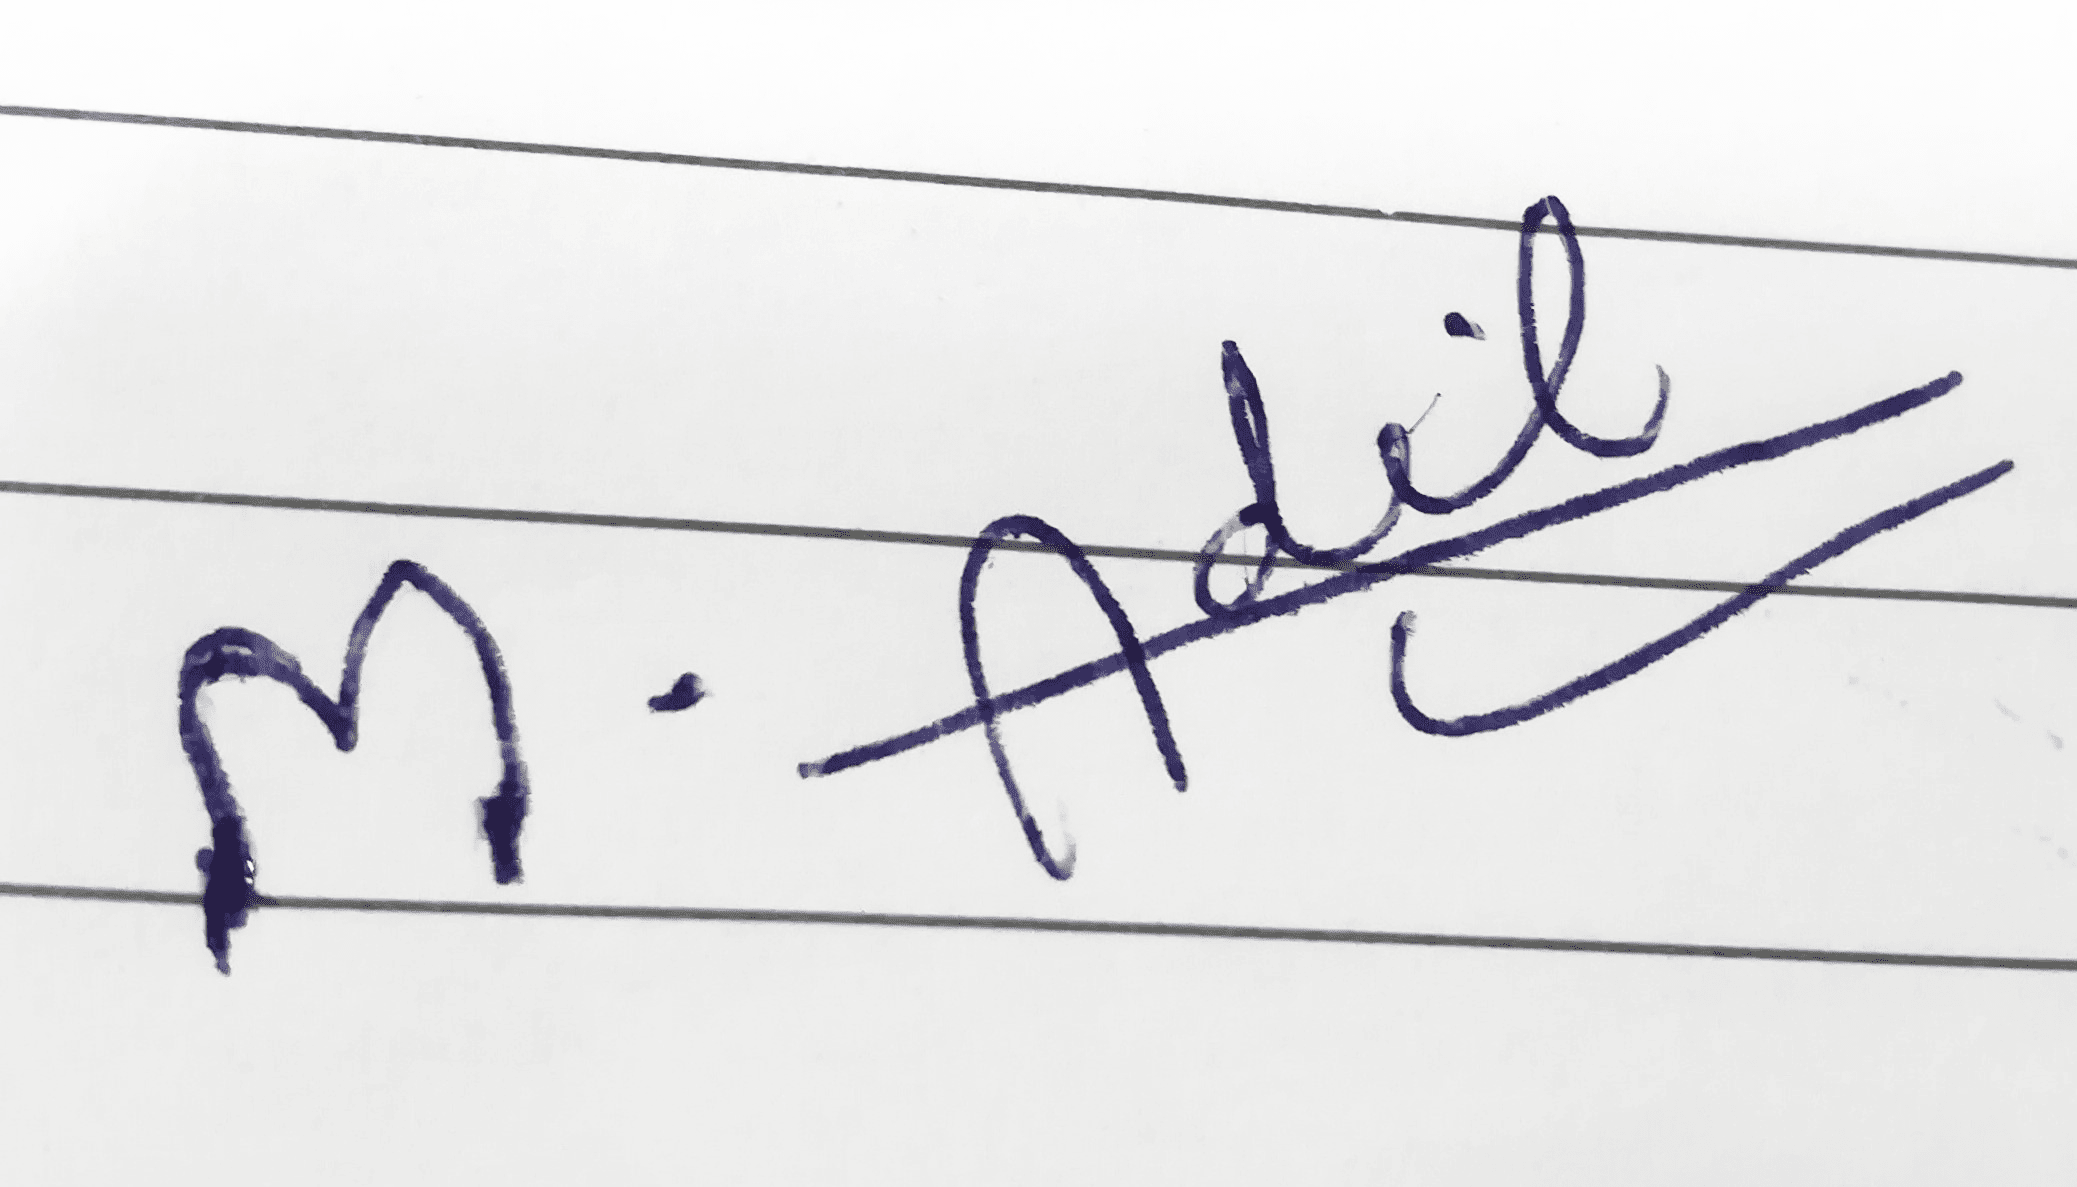 M. Adil